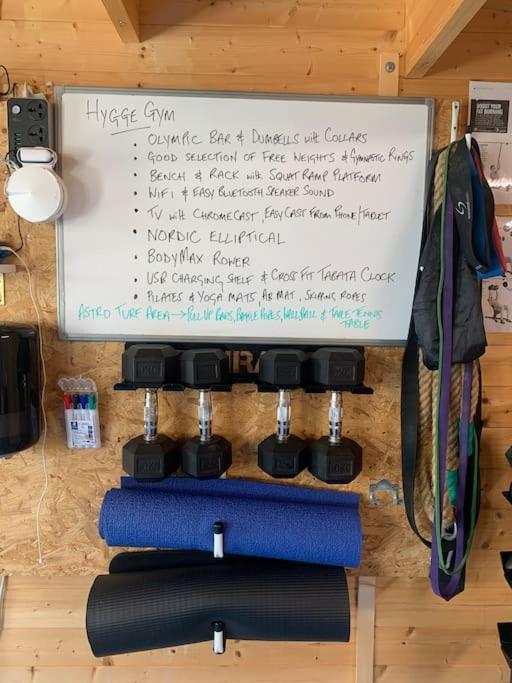 HYGGE GYM
• OLYMPIC BAR & DUMBELLS with COLLARS
• GOOD SELECTION OF FREE WEIGHTS & GYMNASTIC RINGS
• BENCH & RACK with SQUAT RAMP PLATFORM
• WIFI & EASY BLUETOOTH SPEAKER SOUND
• TV with CHROMECAST, EASY CAST FROM PHONE/TABLET
• NORDIC ELLIPTICAL
• BODYMAX ROWER
• USB CHARGING SHELF & CROSS FIT TABATA CLOCK
• PILATES & YOGA MATS, AB MAT, SKIPPING ROPES
ASTRO TURF AREA → PULL UP BARS, BATTLE ROPES, WALL BALL & TABLE TENNIS
TABLE
BOOST YOUR
FAT BURNING